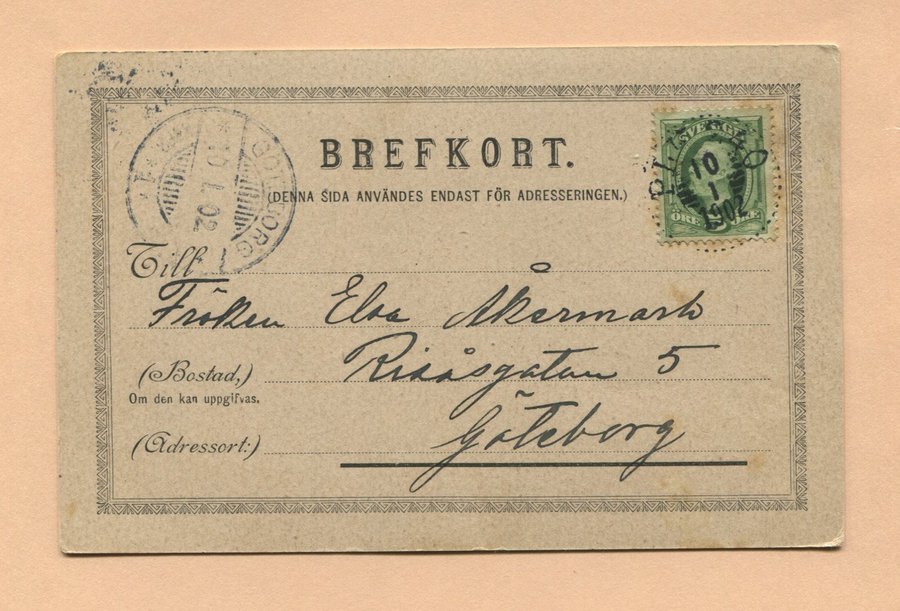 BREFKORT.
(DENNA SIDA ANVÄNDES ENDAST FÖR ADRESSERINGEN.)
GÖTEBORG 1
10 1 02
SVERIGE
10
1
1902
ÖRE ÖRE
Till
Fröken Elsa Åkermark
(Bostad,) Risåsgatan 5
Om den kan uppgifvas.
(Adressort:) Göteborg